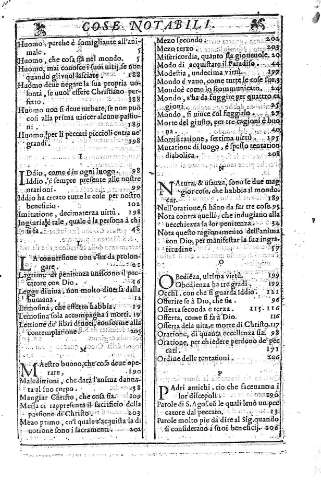 COSE NOTABILI.
Huomo, perche è somigliante all'animale. 5
Huomo, che cosa sia nel mondo. 5
Huomo, mai conosce i suoi vitij se non quando gli vuol lasciare 188
Huomo deve negare la sua propria volontà, se vuol essere Christiano perfetto. 188
Huomo non si deve turbare, se non può così alla prima vincer alcune passioni. 189
Huomo, per li peccati piccoli entra ne' grandi. 189
I
Iddio, come è in ogni luogo. 98
Iddio, è sempre presente alle nostre orationi. 99
Iddio ha creato tutte le cose per nostro beneficio.
Imitatione, decimaterza virtù. 198
L
La conversione non s'ha da prolongare.
Lagrime di penitenza uniscono il peccatore con Dio. 16
Legge divina, non molto dista dalla humana. 12
Elemosina, che effetto habbia. 19
Elemosina sola accompagna i morti. 19
Lettione de' libri devoti, conforme alla contemplatione 205
M
Maestro buono, che cosa deve operare, 190
Maledittioni, che darà l'anima dannata al suo corpo. 58
Mangiar Christo, che cosa sia. 209
Messa ci rappresenta il sacrificio della passione di Christo. 203
Mezo primo, co'l quale s'acquista la divotione sono i sacramenti. 202
Mezo secondo. 202
Mezo terzo. 203
Misericordia, quanto sia giovevole. 20
Modo di acquistare il Paradiso. 44
Modestia, undecima virtù. 197
Mondo è vano, come tutte le cose sue.
Mondo, s'ha da fuggire per quattro cagioni.
Mondo, si vince col fuggirlo. 27
Morte del giusto, per tre cagioni è buona. 40
Mortificatione, settima virtù. 195
Mutatione di luogo, è spesso tentatione diabolica. 208
N
Natura, & usanza, sono le due maggior cose, che habbia il mondo. 189
Nell'oratione, si hanno da far tre cose. 95
Nota contra quelli, che indugiano alla vecchiezza la lor penitenza. 2
Nota quello ragionamento dell'anima con Dio, per manifestar la sua ingratitudine. 57
O
Obedienza, ultima virtù. 199
Obedienza ha tre gradi. 199
Occhi, con che si guarda Iddio. 111
Offerirsi è à Dio, che sia. 96
Offerta seconda e terza. 115. 116
Offerta, come si fà à Dio. 116
Offerta della vita, e morte di Christo. 117
Oratione, di quanta eccellenza sia. 98
Oratione, per chiedere perdono de' peccati. 171
Ordine delle tentationi. 206
P
Padri antichi, ciò che faceuano i lor discepoli. 190
Parole di S. Agostino le quali levò un peccatore dal peccato. 13
Parole molto pie da dire al Sig. quando si considerano i suoi beneficij. 206